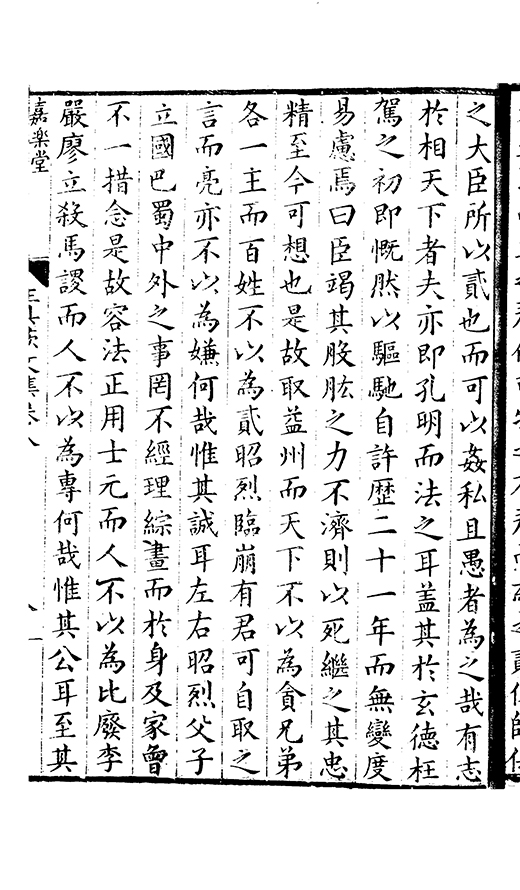 之大臣所以貳也而可以姦私且愚者為之哉有志
於相天下者夫亦即孔明而法之耳盖其於玄德枉
駕之初即慨然以驅馳自許歴二十一年而無變度
易慮焉曰臣竭其股肱之力不濟則以死繼之其忠
精至今可想也是故取益州而天下不以為貪兄弟
各一主而百姓不以為貳昭烈臨崩有君可自取之
言而亮亦不以為嫌何哉惟其誠耳左右昭烈父子
立國巴蜀中外之事罔不經理綜畫而於身及家曾
不一措念是故容法正用士元而人不以為比廢李
嚴廖立殺馬謖而人不以為專何哉惟其公耳至其
嘉樂堂
文集卷八